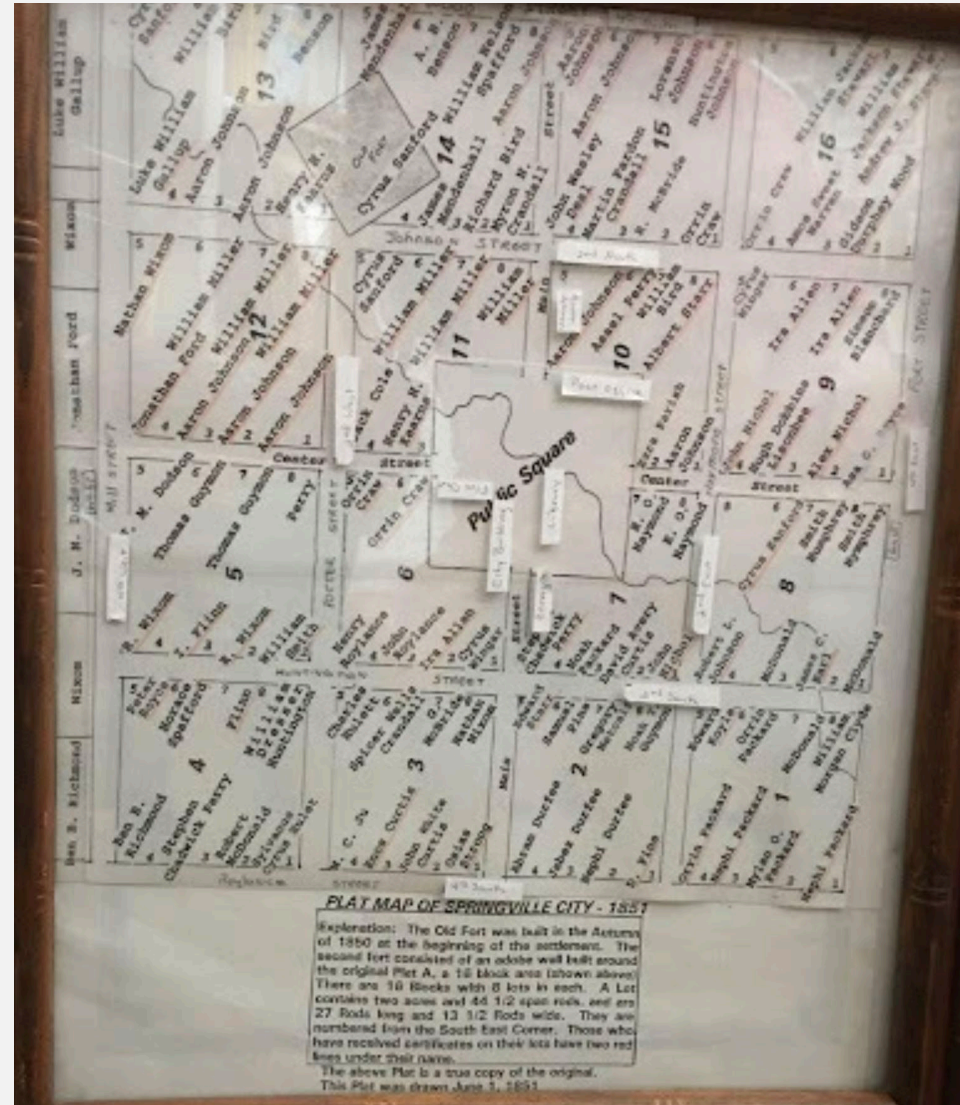 Luke William
Gallup
Wixom
Jonathan Ford
J. M. Dodson
Nixom
Ben B. Richmond
Luke William
Gallup
Aaron Johnson
Aaron Johnson
Henry H.
Kearns
13
Bird
Benson
Old
Fort
Cyrus Sanford
14
James
Mendenhall
A. B.
Benson
William Nelson
Spafford
Aaron Johnson
James
Mendenhall
Richard Bird
Myron N.
Crandall
Street
Aaron
Johnson
Aaron Johnson
Lorenzo
Johnson
Huntington
Johnson
15
John Wesley
Deal
Martin Pardon
Crandall
R. McBride
Orrin
Craw
16
Orrin Craw
Amos Sweet
Warren
Gideon
Durphey Wood
JOHNSON STREET
2nd South
Nathan Wixom
William Miller
William Miller
William Miller
12
Jonathan Ford
Aaron Johnson
Aaron Johnson
Aaron Johnson
Cyrus
Sanford
William Miller
William Miller
William
Miller
11
Henry H.
Kearns
Main
Aaron Johnson
Asael Perry
William
Bird
Albert Starr
10
Post Office
Ezra Parish
Aaron
Johnson
Cyrus
Wingar
Ira Allen
Ira Allen
Simeon
Blanchard
9
John Nichol
Hugh Dobbins
Liscnbee
Alex Nichol
FORT STREET
MILL STREET
Center Street
Center Street
J. M. Dodson
Thomas Guymon
Thomas Guymon
Perry
5
N. Wixom
I. Flinn
N. Wixom
William
Smith
POTTER STREET
Orrin
Craw
Orrin Craw
6
Henry
Roylance
John
Roylance
Ira Allen
Cyrus
Wingar
Public Square
City Building
Library
Street
E. O.
Haymond
E. O.
Haymond
7
Chadwick
Perry
Noah
Packard
David Avery
Curtis
John
Nichol
2nd East
Cyrus Sanford
Smith
Humphrey
Smith
Humphrey
8
Robert L.
Johnson
McDonald
James C.
Earl
McDonald
HUNTINGTON STREET
3rd South
Peter
Boyce
Horace
Spafford
Flinn
William
Dresser
Huntington
4
Ben B.
Richmond
Stephen
Chadwick Perry
Robert
McDonald
Sylvanus
Cyrus Hulet
Charles
Hulett
Spicer Wells
Crandall
G.
McBride
Nathan
Wixom
3
W. C. Ju
Enos Curtis
John White
Curtis
Ozias
Strong
Main
Edward
Starr
Samuel
Pine
Gregory
Metcalf
Noah T.
Guymon
2
Abram Durfee
Jabez Durfee
Nephi Durfee
D. Pine
Edward
Koyle
Orrin
Packard
McDonald
William
Morgan Clyde
1
Orrin Packard
Nephi Packard
Nylan O.
Packard
Nephi Packard
Roylance STREET
4th South
PLAT MAP OF SPRINGVILLE CITY - 1851
Explanation: The Old Fort was built in the Autumn
of 1850 at the beginning of the settlement. The
second fort consisted of an adobe wall built around
the original Plat A, a 16 block area (shown above)
There are 16 Blocks with 8 lots in each. A Lot
contains two acres and 44 1/2 span rods, and are
27 Rods long and 13 1/2 Rods wide. They are
numbered from the South East Corner. Those who
have received certificates on their lots have two red
lines under their name.
The above Plat is a true copy of the original.
This Plat was drawn June 1, 1851